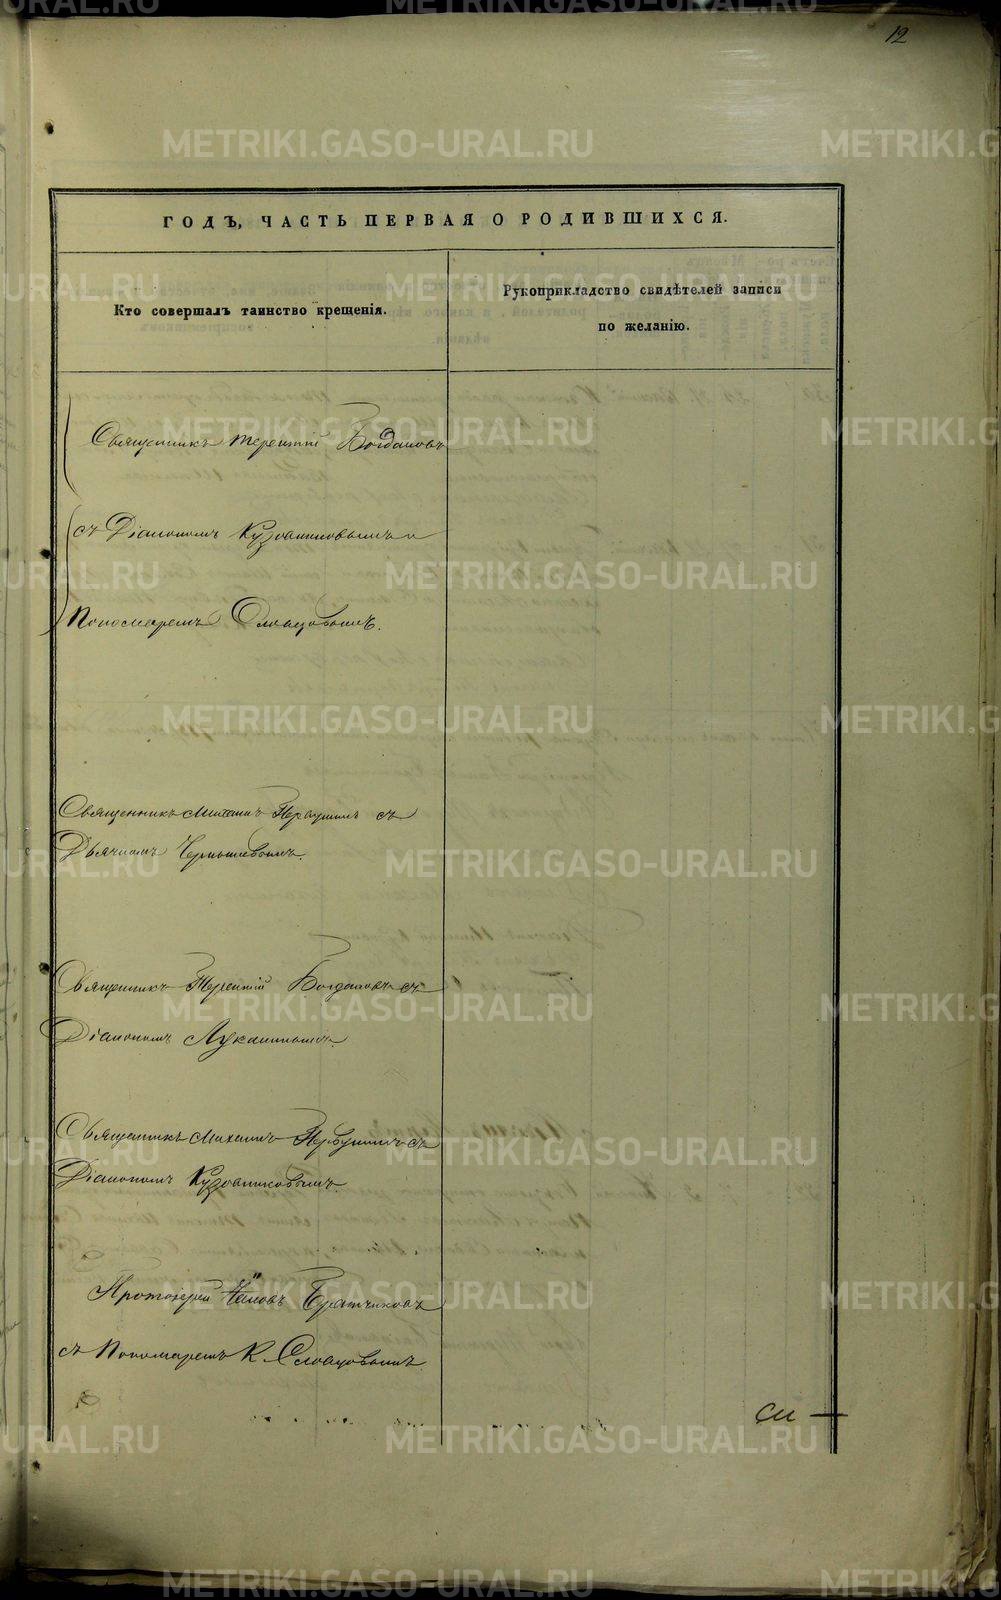 12
ГОДЪ, ЧАСТЬ ПЕРВАЯ О РОДИВШИХСЯ.
Кто совершалъ таинство крещенія.
Рукоприкладство свидѣтелей записи
по желанію.
Священникъ Терентій Богдановъ
съ Діакономъ Кузовниковымъ и
Пономаремъ Словцовымъ.
Священникъ Михаилъ Первушинъ съ
Дьячкомъ Чернышевымъ.
Священникъ Терентій Богдановъ съ
Діакономъ Луканинымъ
Священникъ Михаилъ Первушинъ съ
Діакономъ Кузовниковымъ.
Протоіерей Іаковъ Братчиковъ
съ Пономаремъ К. Словцовымъ
METRIKI.GASO-URAL.RU